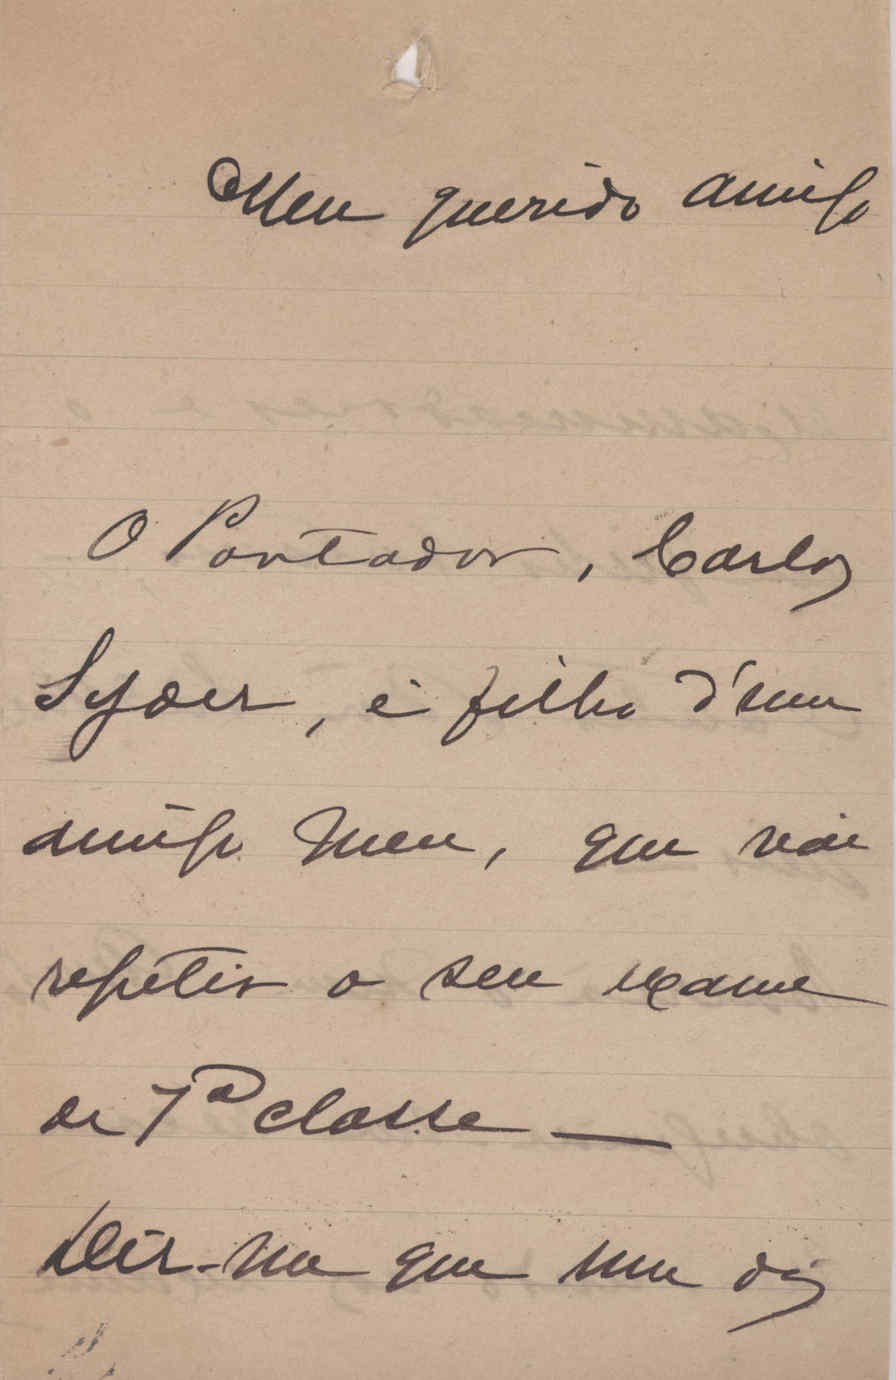 Meu querido amigo
O Portador, Carlos
Syder, é filho d'um
amigo meu, que vai
repetir o seu exame
de 7ª classe —
Diz-me que um dos